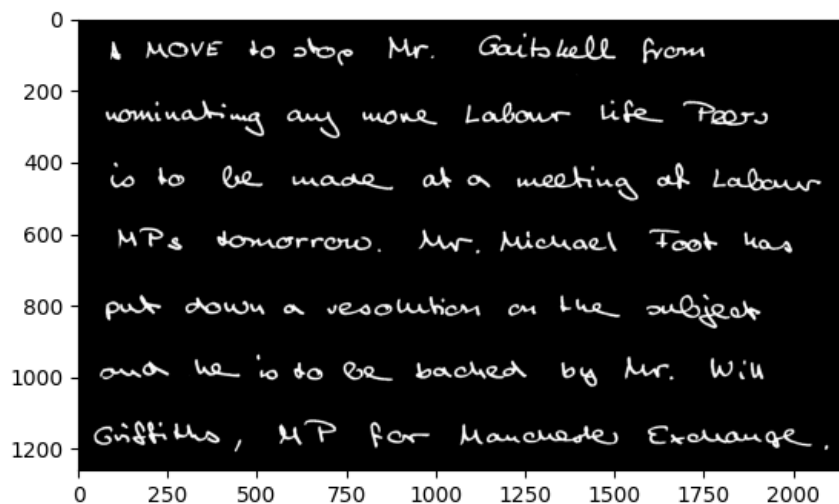 A MOVE to stop Mr. Gaitskell from
nominating any more Labour life Peers
is to be made at a meeting of Labour
MPs tomorrow. Mr. Michael Foot has
put down a resolution on the subject
and he is to be backed by Mr. Will
Griffiths, MP for Manchester Exchange.
0
200
400
600
800
1000
1200
0 250 500 750 1000 1250 1500 1750 2000